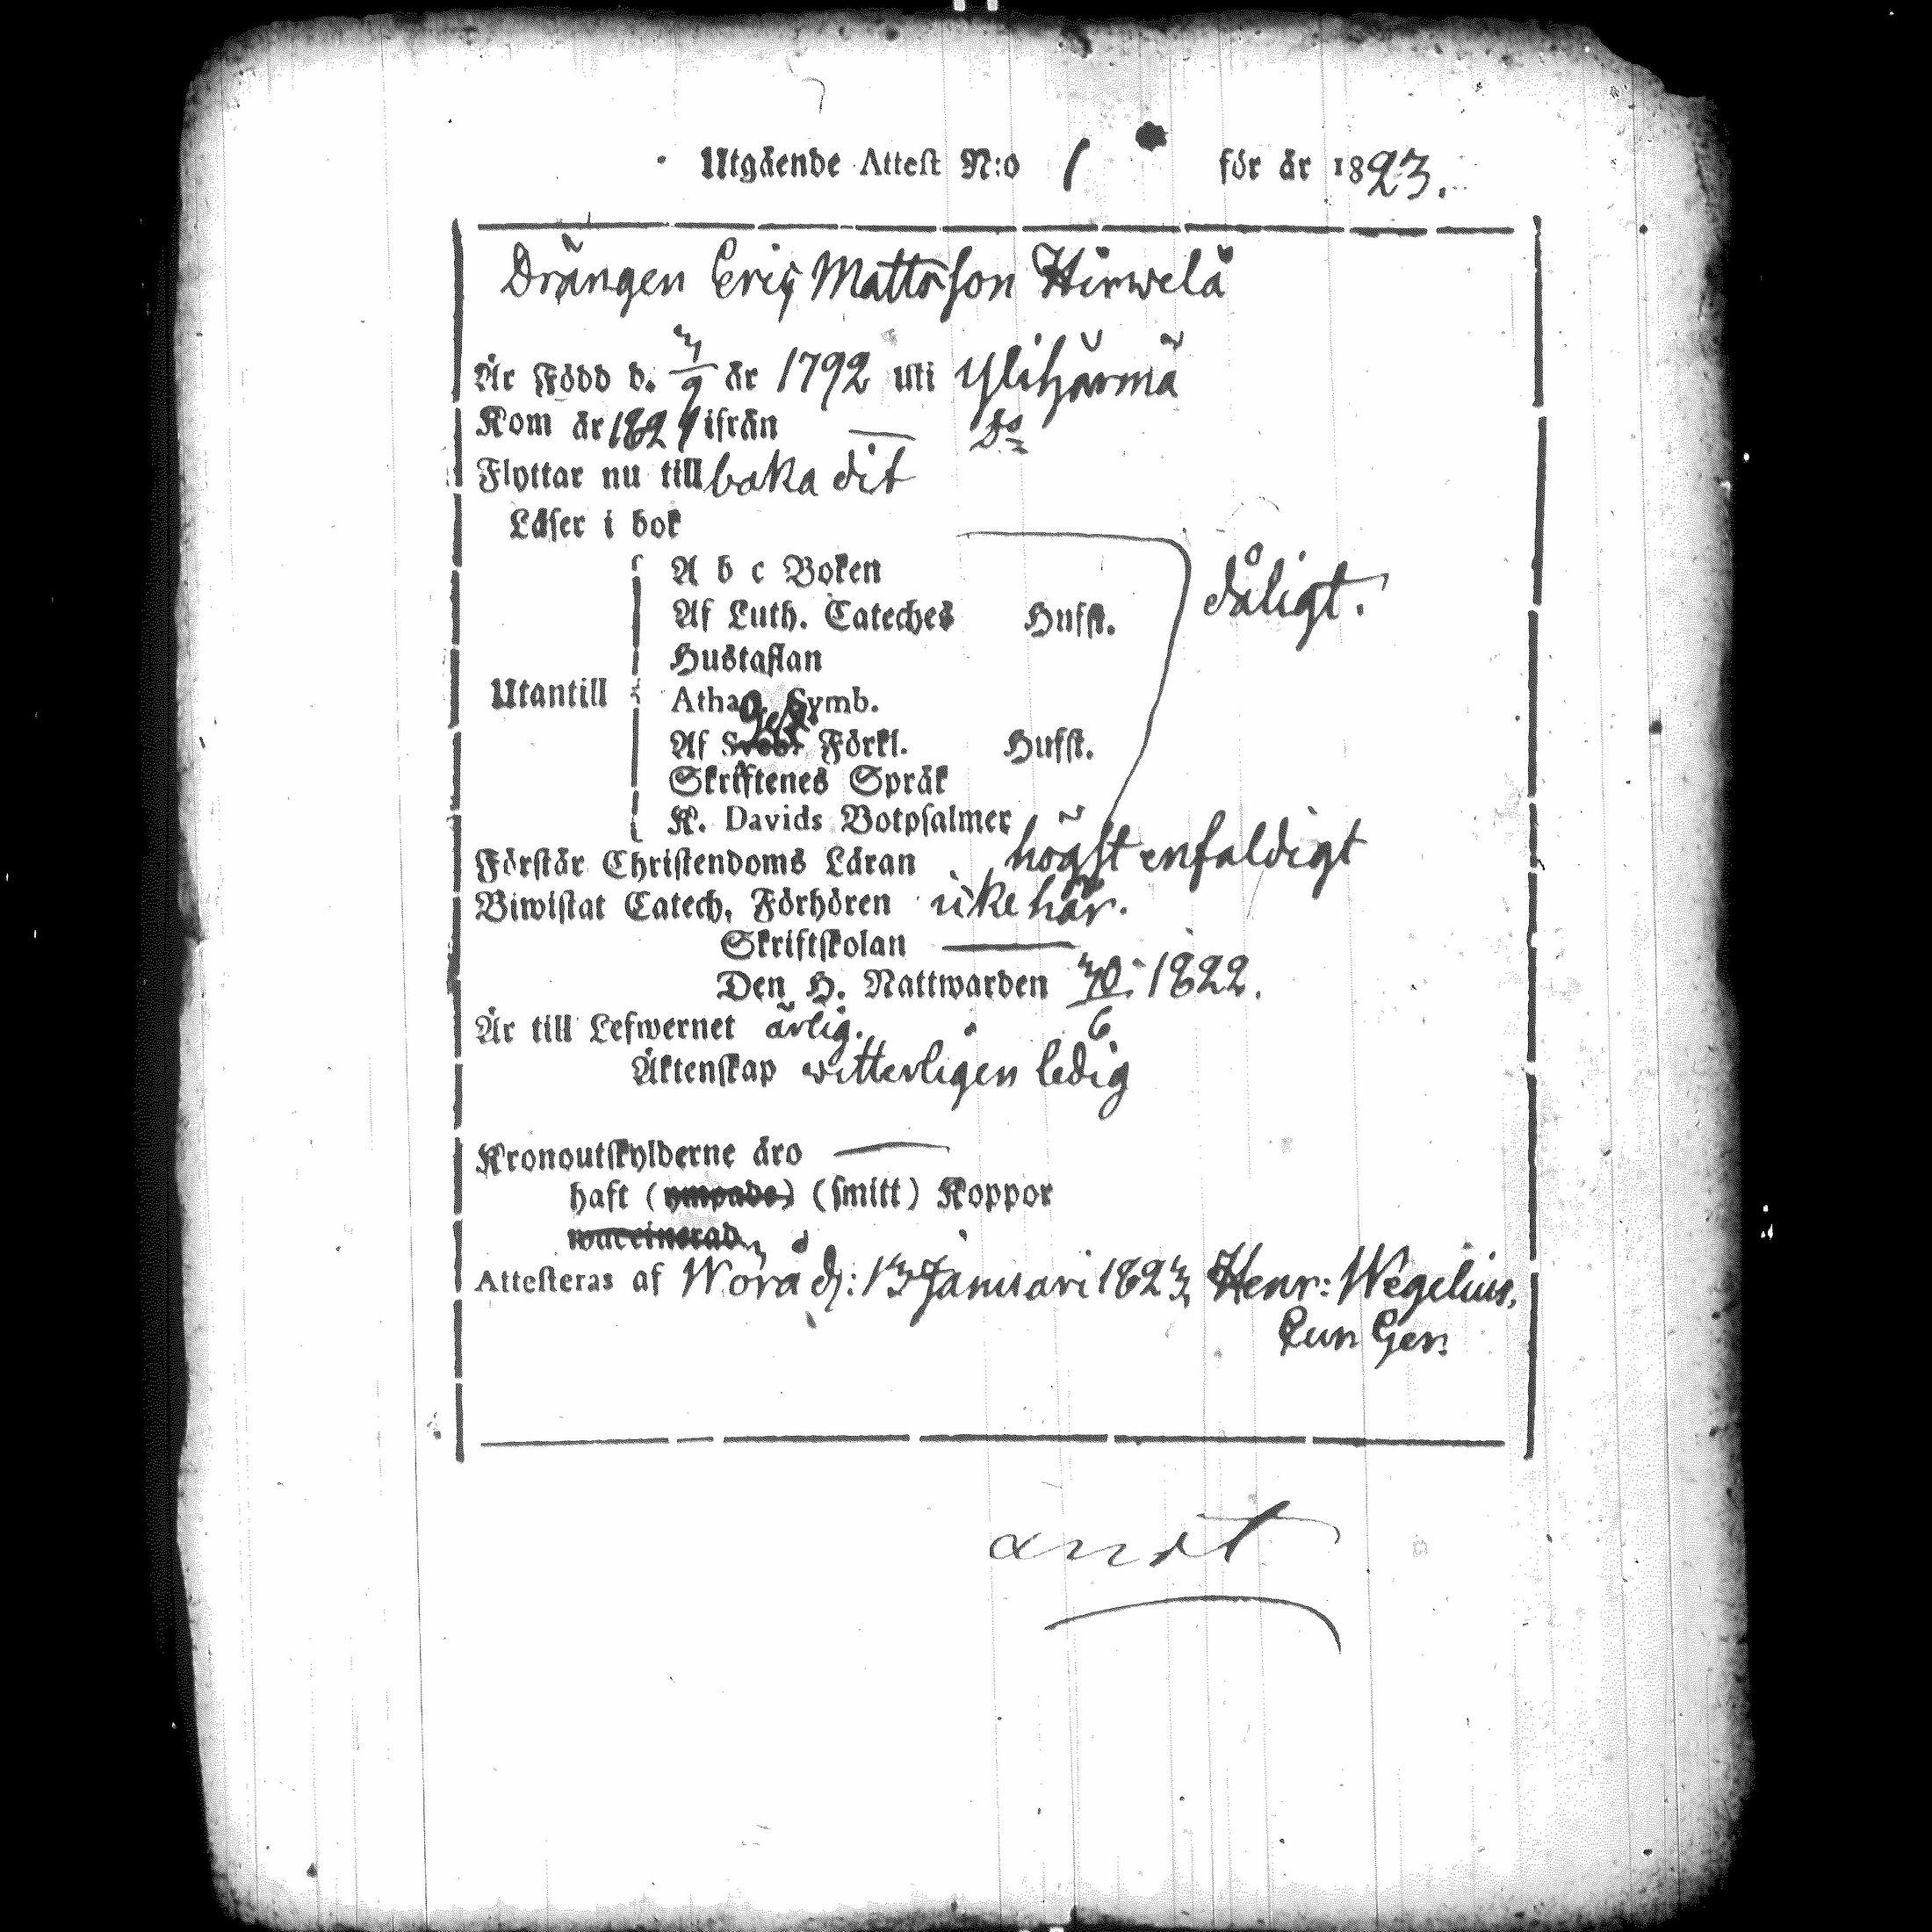 Utgående Attest N:o 1 för år 1823.
Drängen Eric Mattsson Hirwelä
Är Född d. 3/9 år 1792 uti Ylihärmä
Kom år 1821 ifrån — Do
Flyttar nu till baka dit
Läser i bok
A b c Boken
dåligt.
Af Luth. Cateches Hufst.
Hustaflan
Utantill
Atha. Symb.
Af Förkl. Hufst.
Skriftenes Språk
K. Davids Botpsalmer
Förstår Christendoms Läran högst enfaldigt
Biwistat Catech. Förhören icke här.
Skriftskolan —
Den H. Nattwarden 30/6 1822.
Är till Lefwernet ärlig.
Äktenskap witterligen ledig
Kronoutskylderne äro —
haft (ympade) (smitt) Koppor
waccinerad
Attesteras af Wörå d: 13 Januari 1823, Henr: Wegelius,